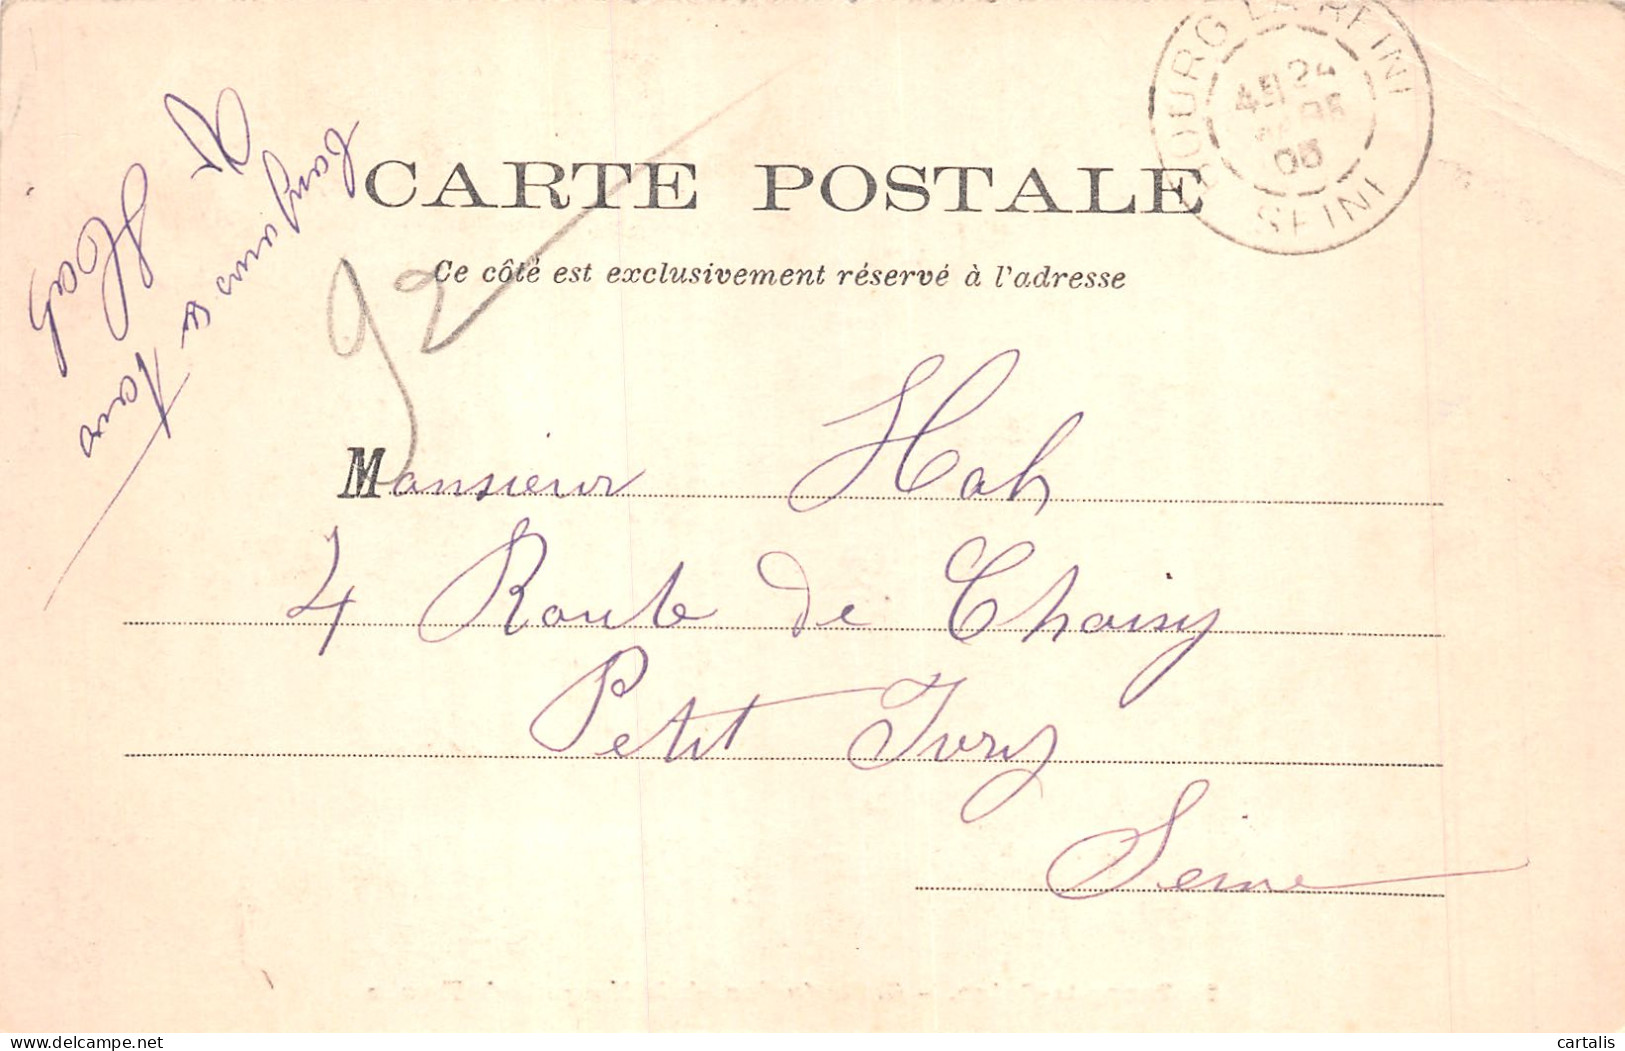 CARTE POSTALE
Ce côté est exclusivement réservé à l'adresse
BOURG LA REINE
SEINE
24
92
Monsieur Hah
4 Route de Choisy
Petit Ivry
Seine
cartalis
delcampe.net